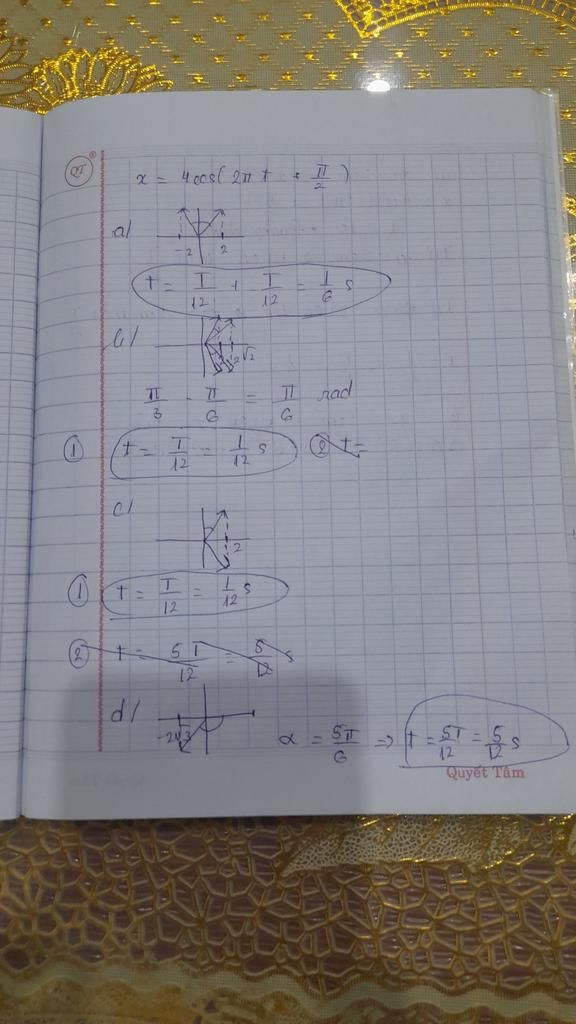 QT
x = 4cos(2π t + π/2)
a/
-2 2
t = T/12 + T/12 = 1/6 s
b/
2√2
π/3 - π/6 = π/6 rad
① t = T/12 = 1/12 s ② t =
c/
2
① t = T/12 = 1/12 s
② t = 5T/12 = 5/12 s
d/
-2√3
α = 5π/6 => t = 5T/12 = 5/12 s
Quyết Tâm